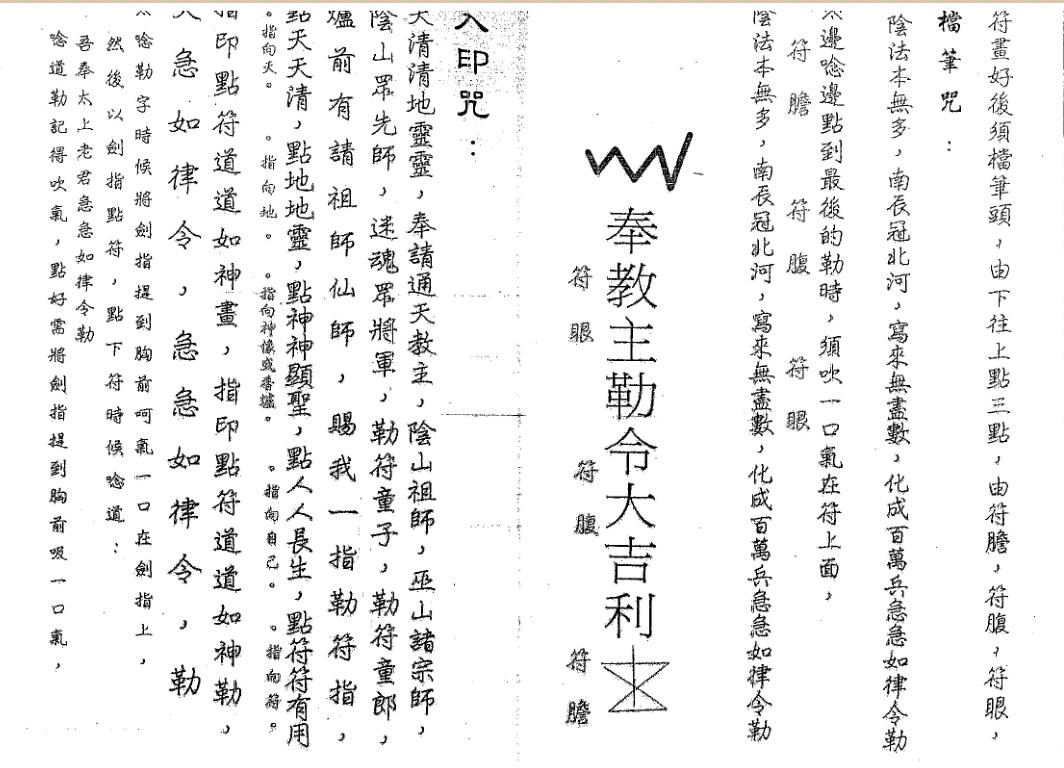 符畫好後須檔筆頭，由下往上點三點，由符膽，符腹，符眼，
檔筆咒：
陰法本無多，南辰冠北河，寫來無盡數，化成百萬兵急急如律令勒
邊唸邊點到最後的勒時，須吹一口氣在符上面，
符膽　符腹　符眼
陰法本無多，南辰冠北河，寫來無盡數，化成百萬兵急急如律令勒
奉教主勒令大吉利
符眼　符腹　符膽
入印咒：
天清清地靈靈，奉請通天教主，陰山祖師，巫山諸宗師，
陰山眾先師，迷魂眾將軍，勒符童子，勒符童郎，
爐前有請祖師仙師，賜我一指勒符指，
點天天清，點地地靈，點神神顯聖，點人人長生，點符符有用
。指向天。　。指向地。　。指向神像或香爐。　。指向自己。　。指向符。
指印點符道道如神畫，指印點符道道如神勒，
急如律令，急急如律令，勒
唸勒字時候將劍指提到胸前呵氣一口在劍指上，
然後以劍指點符，點下符時候唸道：
吾奉太上老君急急如律令勒
唸道勒記得吹氣，點好需將劍指提到胸前吸一口氣，